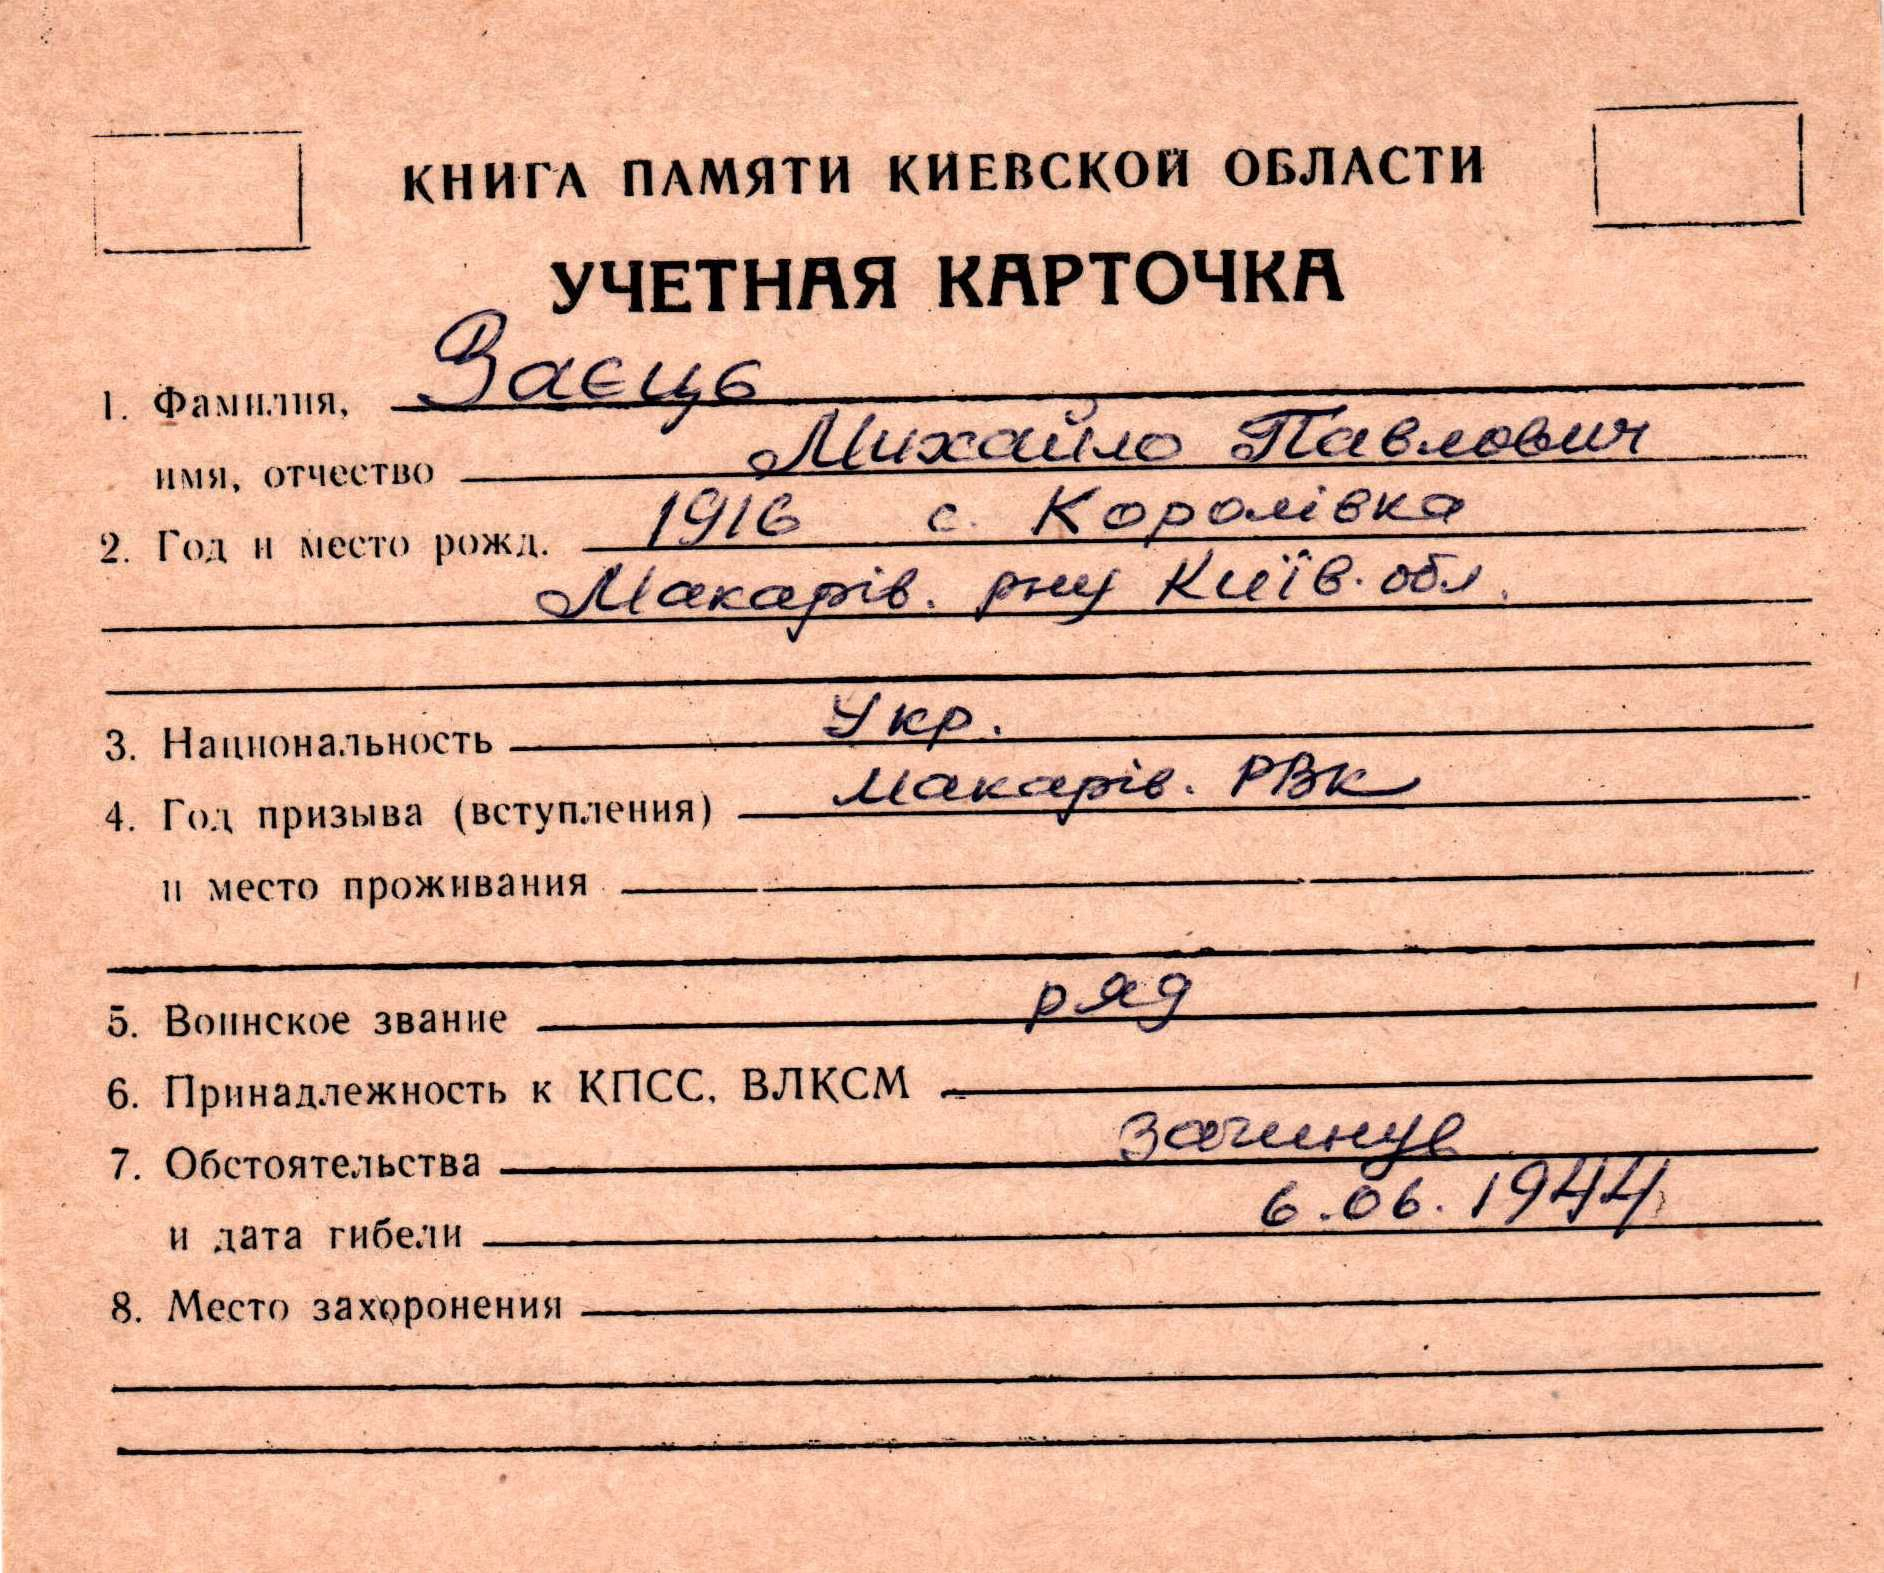 КНИГА ПАМЯТИ КИЕВСКОЙ ОБЛАСТИ
УЧЕТНАЯ КАРТОЧКА
1. Фамилия, Заєць
имя, отчество Михайло Павлович
2. Год и место рожд. 1916 с. Королівка
Макарів. рну Київ. обл.
3. Национальность Укр.
4. Год призыва (вступления) Макарів. РВК
и место проживания
5. Воинское звание ряд
6. Принадлежность к КПСС, ВЛКСМ
7. Обстоятельства загинув
и дата гибели 6.06.1944
8. Место захоронения